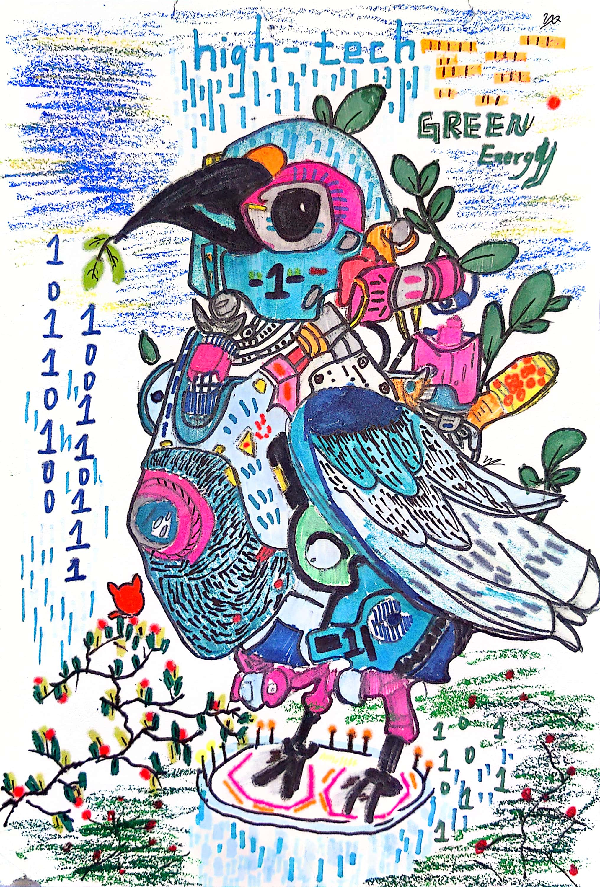 high-tech
GREEN
Energy
-1-
1
0
1
1
0
1
0
0
1
0
0
1
1
0
1
1
1
1 0 1
1 0
0 0 1
1